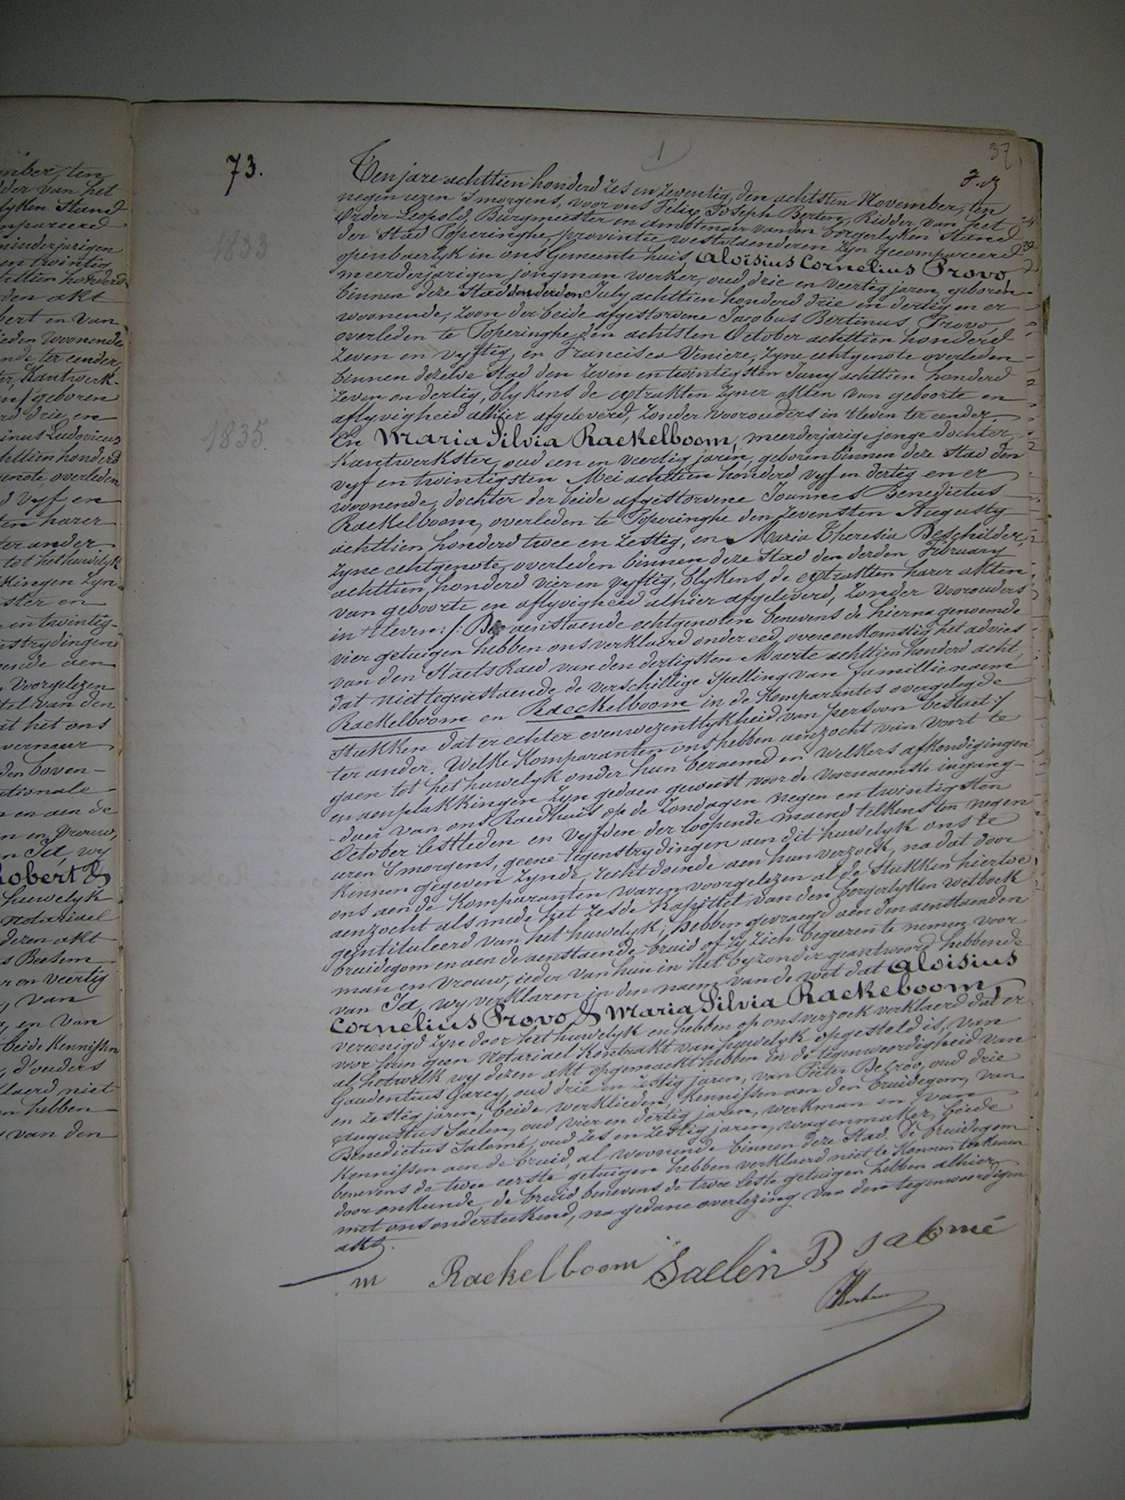 73.
37
1833
1835
Ten jare achttien honderd zes en zeventig, den achtsten November, ten
negen uren 's morgens, voor ons Felix Joseph Berten, Ridder van het
Order Leopold, Burgmeester en ambtenaer van den borgerlyken Stand
der Stad Poperinghe, provintie westvlaenderen zyn gecompareerd
openbaerlyk in ons Gemeente huis, Aloisius Cornelius Provo,
meerderjarigen jongman werker, oud drie en veertig jaren, geboren
binnen deze Stad den derden July achttien honderd drie en dertig en er
woonende, zoon der beide afgestorvene Jacobus Bertinus Provo,
overleden te Poperinghe, den achtsten October achttien honderd
zeven en vyftig, en Francisca Veniere, zyne echtgenote overleden
binnen dezelve stad den zeven en twintigsten Juny achttien honderd
zeven en dertig, blykens de extrakten zyner akten van geboorte en
aflyvigheid alhier afgeleverd, zonder voorouders in t'leven ter eender
En Maria Silvia Raekelboom, meerderjarige jonge dochter,
kantwerkster, oud een en veertig jaren, geboren binnen deze Stad den
vyf en twintigsten Mei achttien honderd vyf en dertig en er
woonende, dochter der beide afgestorvene Joannes Benedictus
Raekelboom, overleden te Poperinghe den zevensten Augusty
achttien honderd twee en zestig, en Maria Theresia Deschilder,
zyne echtgenote, overleden binnen deze Stad den derden February
achttien honderd vier en vyftig, blykens de extrakten harer akten
van geboorte en aflyvigheid alhier afgeleverd, zonder voorouders
in t'leven :/: De aenstaende echtgenoten benevens de hierna genoemde
vier getuigen hebben ons verklaerd onder eed, overeenkomstig het advies
van den Staets Raed van den dertigsten Maerte achttien honderd acht,
dat niettegenstaende de verschillige spelling van famillie naem
Raekelboom en Raeckelboom in de komparantes overgelegde
stukken dat er echter evenwezentlykheid van persoon bestaet :/
ter ander. Welke komparanten ons hebben aenzocht van voort te
gaen tot het huwelyk onder hun beraemd en welkers afkondigingen
en aenplakkingen zyn gedaen geweest voor de voornaemste ingang-
-deur van ons Raedhuis op de Zondagen negen en twintigsten
October lestleden en vyfden der loopende maend telkens ten negen
uren 's morgens, geene tegenstrydingen aen dit huwelyk ons te
kinnen gegeven zynde, recht doende aen hun verzoek, na dat door
ons aen de komparanten waren voorgelezen al de stukken hiertoe
aenzocht als mede het zesde kapittel van den borgerlyken wetboek
geintituleerd van het huwelyk, hebben gevraegd aen den aenstaenden
bruidegom en aen de aenstaende bruid of zy zich begeeren te nemen voor
man en vrouw, ieder van hun in het byzonder geantwoord hebbende
van Ja, wy verklaren in den naem van de wet dat Aloisius
Cornelius Provo & Maria Silvia Raekeboom,
vereenigd zyn door het huwelyk en hebben op ons verzoek verklaerd dat er
voor hun geen Notariael kontrakt van huwelyk opgesteld is, van
al hetwelk wy dezen akt opgemaekt hebben in de tegenwoordigheid van
Gaudentius Garcy, oud drie en zestig jaren, van Pieter Decroo, oud drie
en zestig jaren, beide werklieden, kennissen aen den bruidegom, van
Augustus Saelen, oud vier en dertig jaren, werkman en van
Benedictus Salomé, oud zes en zestig jaren, wagenmaker, beide
kennissen aen de bruid, al woonende binnen deze Stad. De bruidegom
benevens de twee eerste getuigen hebben verklaerd niet te konnen teekenen
door onkunde, de bruid benevens de twee leste getuigen hebben alhier
met ons onderteekend, na gedane overlezing van den tegenwoordigen
akt.
m Raekelboom Saelen B Salomé